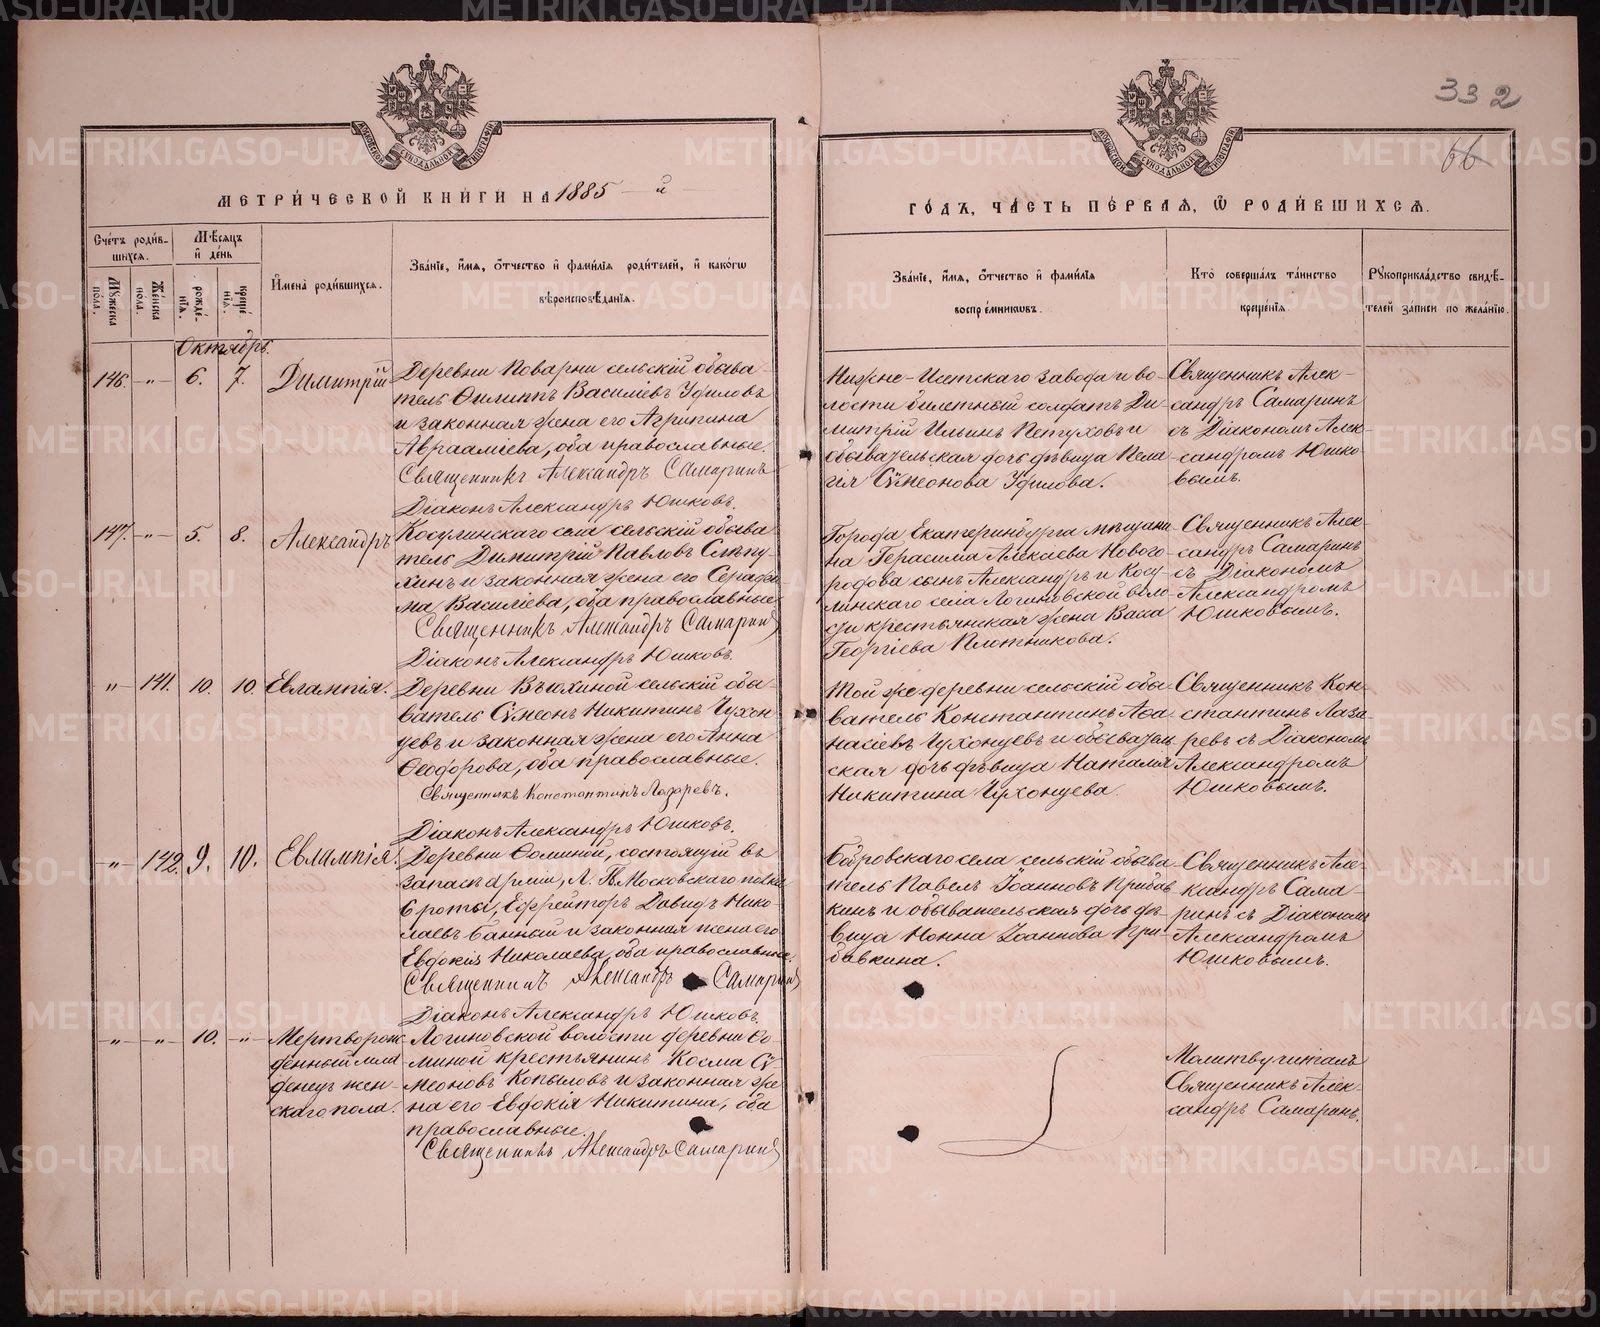 332
66
МОСКОВСКОЙ СѴНОДАЛЬНОЙ ТИПОГРАФІИ
МОСКОВСКОЙ СѴНОДАЛЬНОЙ ТИПОГРАФІИ
МЕТРИ́ЧЕСКОЙ КНИ́ГИ НА 1885 — й —
ГО́ДЪ, ЧА́СТЬ ПЕ́РВАЯ, Ѡ РОДИ́ВШИХСЯ.
Сче́тъ роди́в-
шихся.
Му́жеска по́ла.
Же́нска по́ла.
Мѣ́сяцъ
и де́нь
рожде́-
нія.
креще́-
нія.
Имена̀ роди́вшихся.
Зва́ніе, и́мя, о́тчество и фами́лія роди́телей, и како́гѡ
вѣроисповѣ́данія.
Зва́ніе, и́мя, о́тчество и фами́лія
воспріе́мниковъ.
Кто̀ соверша́лъ та́инство
креще́нія.
Рукоприкла́дство свидѣ́-
телей за́писи по жела́нію.
Октябрь.
146. —„— 6. 7. Димитрій
Деревни Поварни сельскій обыва-
тель Филиппъ Василіевъ Уфиловъ
и законная жена его Агрипина
Авраамієва, оба православные.
Священникъ Александръ Самаринъ
Діаконъ Александръ Юшковъ.
Нижне-Исетскаго завода и во-
лости билетный солдатъ Ди-
митрій Ильинъ Петуховъ и
обывательская дочь дѣвица Пела-
гія Сѵмеонова Уфилова.
Священникъ Алек-
сандръ Самаринъ
съ Діакономъ Алек-
сандромъ Юшко-
вымъ.
147. —„— 5. 8. Александръ
Косулинскаго села сельскій обыва
тель Димитрій Павловъ Слѣпу-
хинъ и законная жена его Серафи-
ма Василіева, оба православные.
Священникъ Александръ Самаринъ
Діаконъ Александръ Юшковъ.
Города Екатеринбурга мѣщани-
на Герасима Алексѣева Нового-
родова сынъ Александръ и Косу-
линскаго села Логиновской воло-
сти крестьянская жена Васса
Георгіева Плотникова.
Священникъ Алек-
сандръ Самаринъ
съ Діакономъ
Александромъ
Юшковымъ.
„— 141. 10. 10. Евлампія.
Деревни Вьюхиной сельскій обы-
ватель Сѵмеонъ Никитинъ Чухон-
цевъ и законная жена его Анна
Ѳеодорова, оба православные.
Священникъ Константинъ Лазаревъ.
Діаконъ Александръ Юшковъ.
Той же деревни сельскій обы-
ватель Константинъ Аѳа-
насіевъ Чухонцевъ и обыватель-
ская дочь дѣвица Наталія
Никитина Чухонцева.
Священникъ Кон-
стантинъ Лаза-
ревъ съ Діакономъ
Александромъ
Юшковымъ.
—„— 142. 9. 10. Евлампія.
Деревни Ѳоминой, состоящій въ
запасѣ арміи, Л. Г. Московскаго полка
6 роты, Ефрейторъ Давидъ Нико-
лаевъ Банный и законная жена его
Евдокія Николаева, оба православные.
Священникъ Александръ Самаринъ
Діаконъ Александръ Юшковъ.
Бобровскаго села сельскій обыва-
тель Павелъ Іоанновъ Прибав-
кинъ и обывательская дочь дѣ-
вица Нонна Іоаннова При-
бавкина.
Священникъ Але-
ксандръ Сама-
ринъ съ Діакономъ
Александромъ
Юшковымъ.
—„— —„— 10. —„— Мертворож-
денный мла-
денецъ жен-
скаго пола.
Логиновской волости деревни Ѳо-
миной крестьянинъ Косма Сѵ-
меоновъ Копыловъ и законная же-
на его Евдокія Никитина, оба
православные.
Священникъ Александръ Самаринъ
Молитву читалъ
Священникъ Алек-
сандръ Самаринъ.